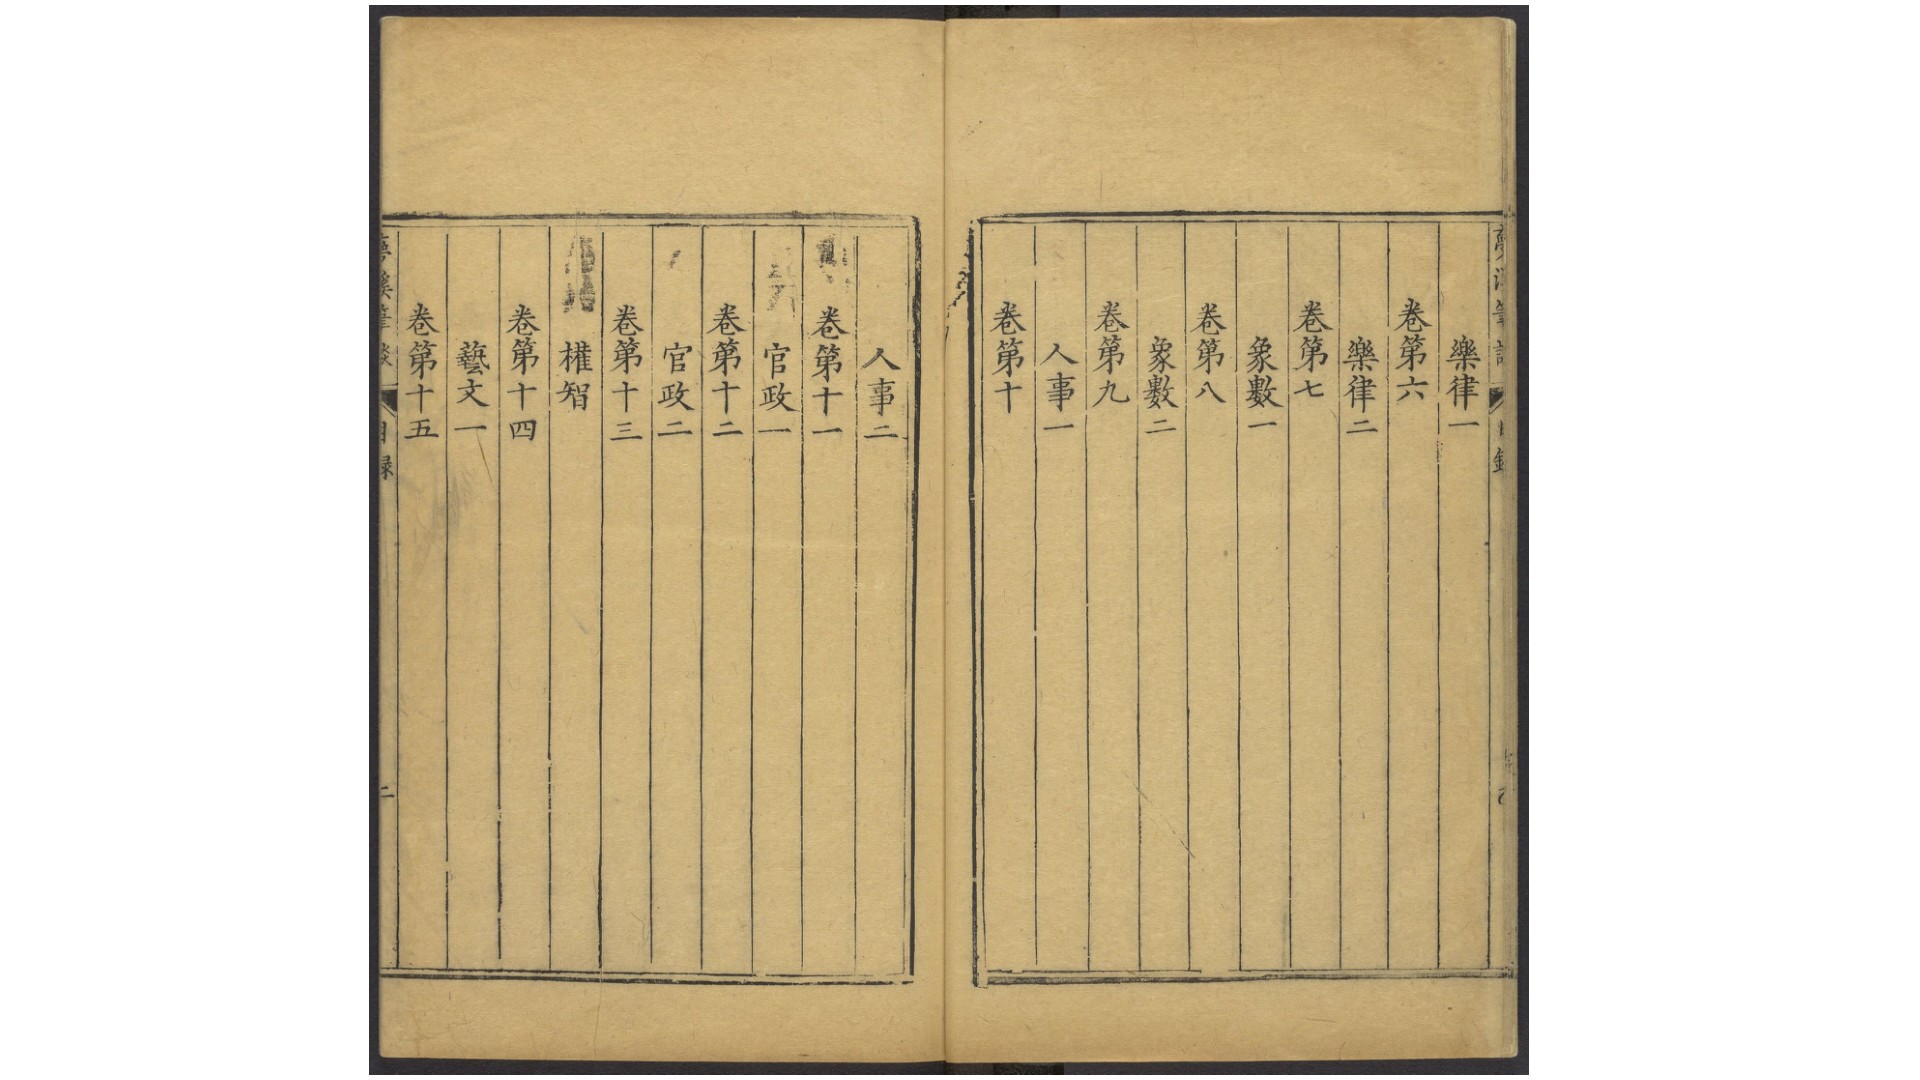 樂律一
卷第六
樂律二
卷第七
象數一
卷第八
象數二
卷第九
人事一
卷第十
人事二
卷第十一
官政一
卷第十二
官政二
卷第十三
權智
卷第十四
藝文一
卷第十五
夢溪筆談 目録 二